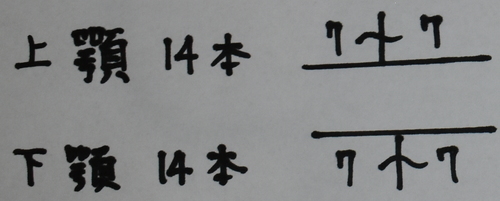 上顎 14本 7～7
下顎 14本 7～7